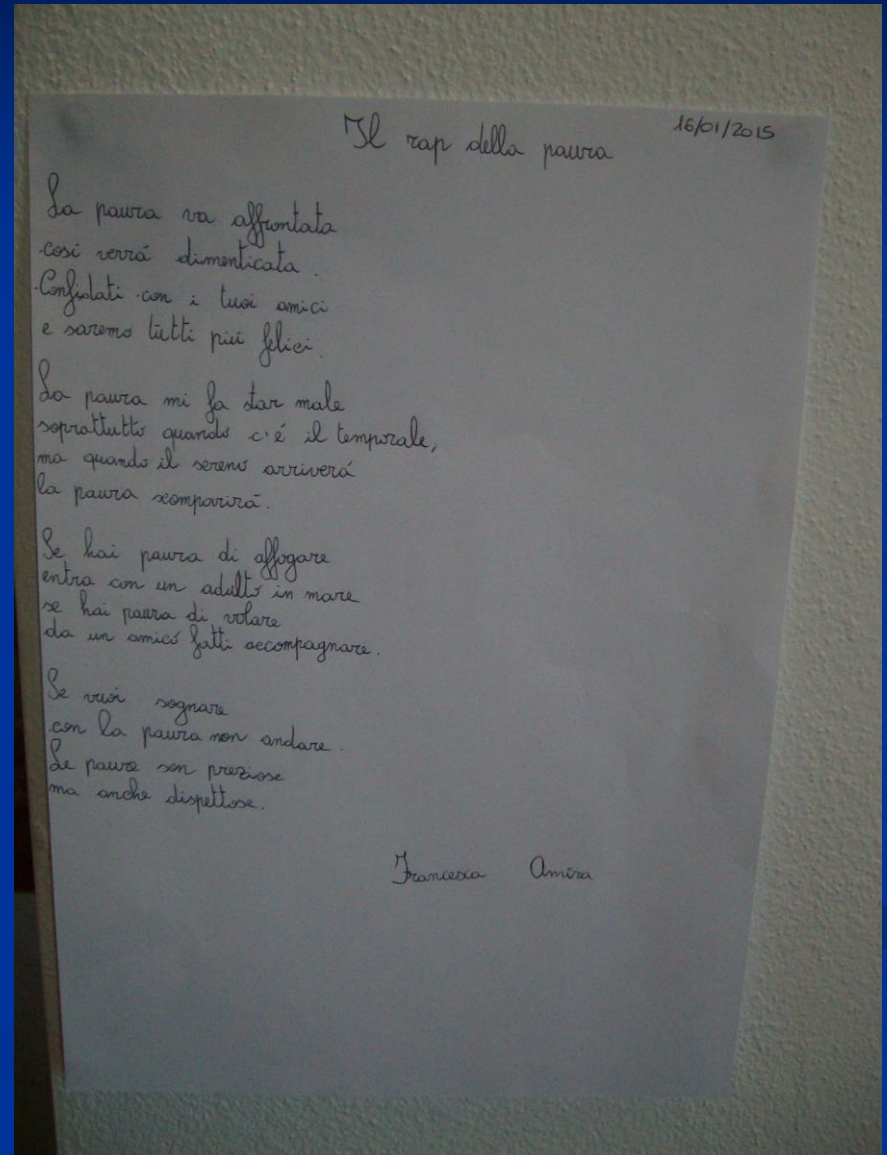 Il rap della paura 16/01/2015
La paura va affrontata
così verrá dimenticata.
Confidati con i tuoi amici
e saremo tutti piú felici.
La paura mi fa star male
soprattutto quando c'é il temporale,
ma quando il sereno arriverá
la paura scomparirá.
Se hai paura di affogare
entra con un adulto in mare
se hai paura di volare
da un amico fatti accompagnare.
Se vuoi sognare
con la paura non andare.
Le paure son preziose
ma anche dispettose.
Francesca Amira